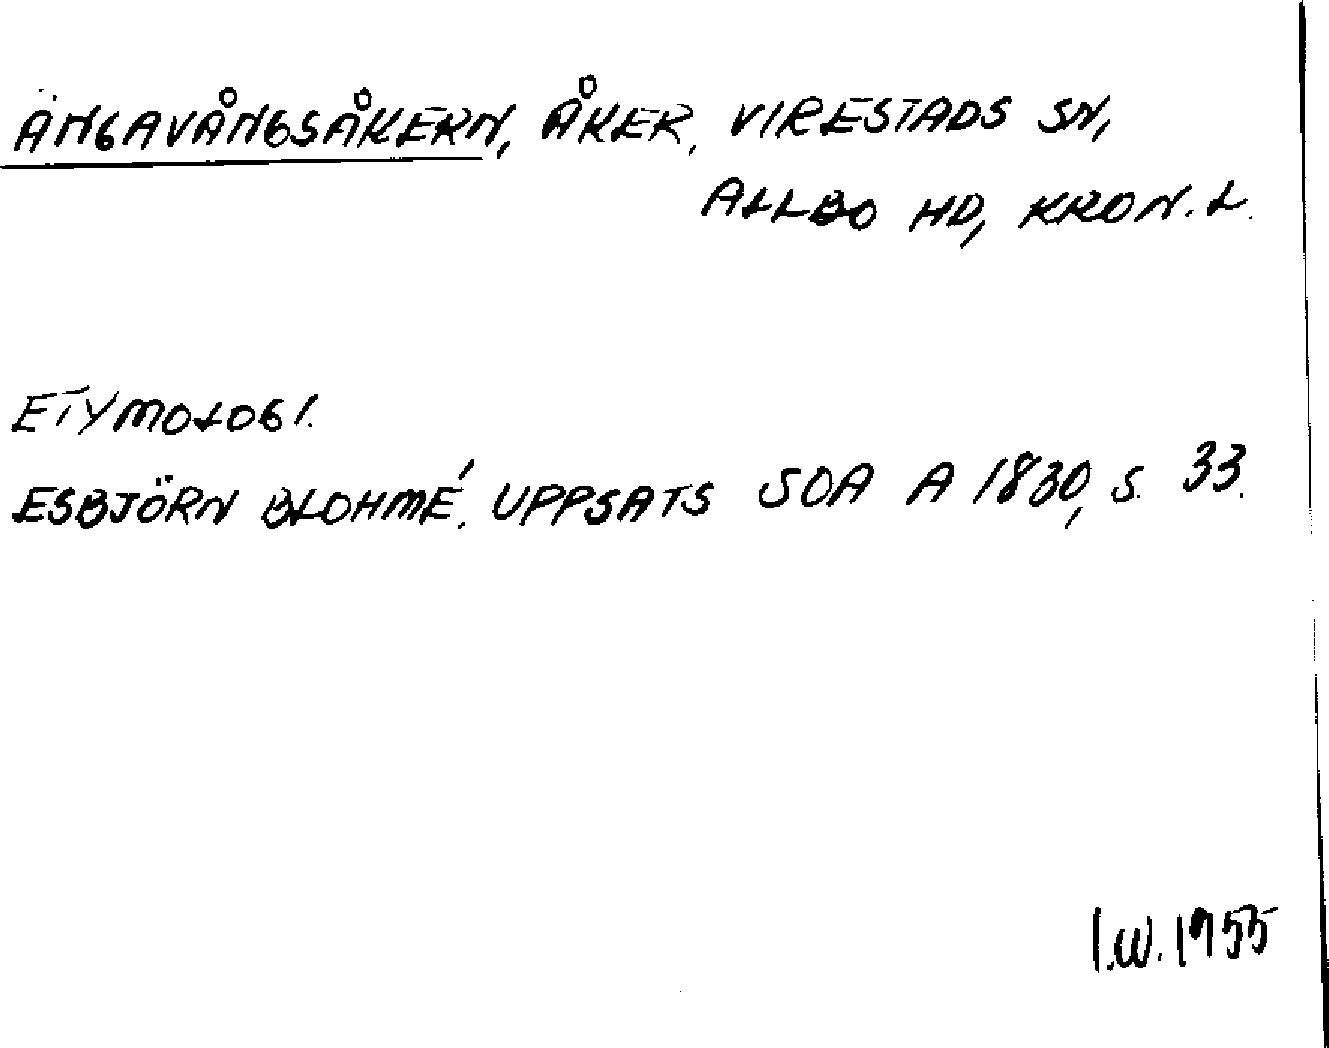 ÄNGAVÅNGSÅKERN, ÅKER, VIRESTADS SN,
ALLBO HD, KRON. L.
ETYMOLOGI.
ESBJÖRN BLOHMÉ, UPPSATS SOA A 1830, S. 33.
I.W. 1955